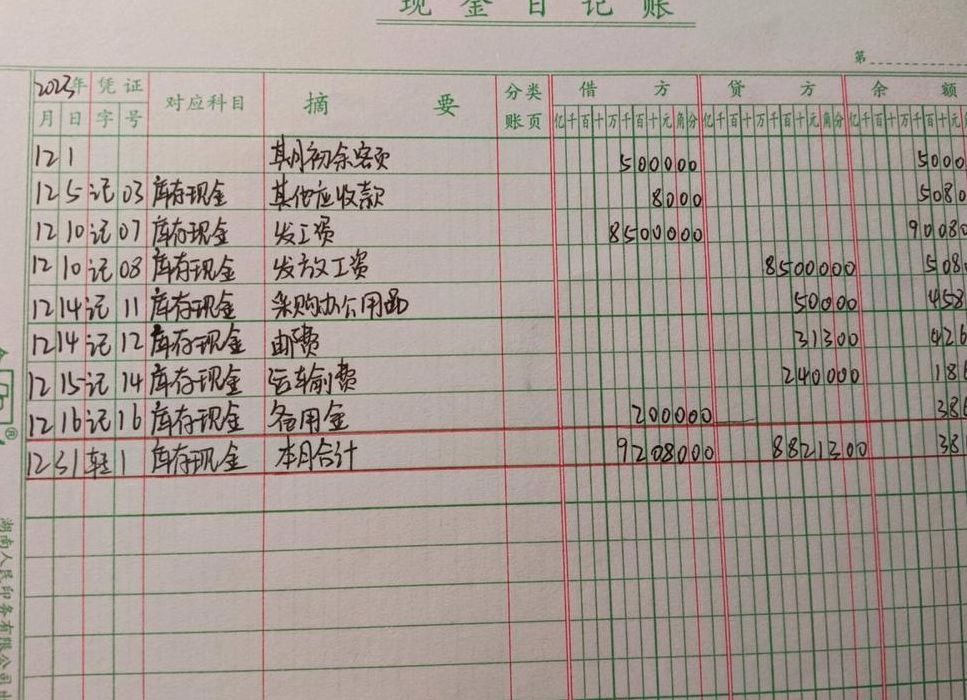 现金日记账
第
2023年 凭证 对应科目 摘要 分类账页 借方 贷方 余额
月 日 字 号 亿千百十万千百十元角分 亿千百十万千百十元角分 亿千百十万千百十元
12 1 期初余额 500000 5000
12 5 记 03 库存现金 其他应收款 8000 5080
12 10 记 07 库存现金 发工资 8500000 90080
12 10 记 08 库存现金 发放工资 8500000 508
12 14 记 11 库存现金 采购办公用品 50000 458
12 14 记 12 库存现金 邮费 31300 426
12 15 记 14 库存现金 运输费 240000 186
12 16 记 16 库存现金 备用金 200000 386
12 31 1 库存现金 本月合计 9208000 8821300 38
湖南人民印务有限公司出